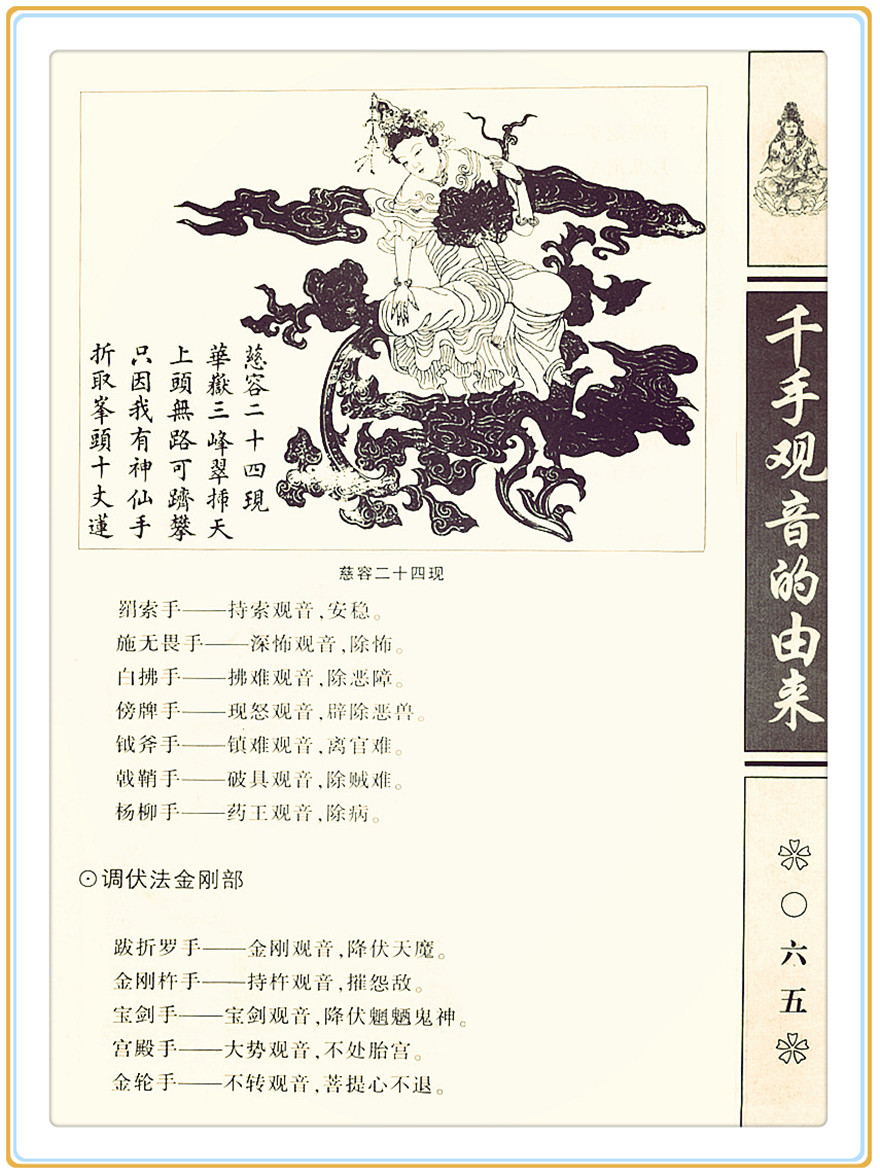 慈容二十四現
華嶽三峰翠揷天
上頭無路可躋攀
只因我有神仙手
折取峯頭十丈蓮
慈容二十四现
羂索手——持索观音,安稳。
施无畏手——深怖观音,除怖。
白拂手——拂难观音,除恶障。
傍牌手——现怒观音,辟除恶兽。
钺斧手——镇难观音,离官难。
戟鞘手——破具观音,除贼难。
杨柳手——药王观音,除病。
⊙调伏法金刚部
跋折罗手——金刚观音,降伏天魔。
金刚杵手——持杵观音,摧怨敌。
宝剑手——宝剑观音,降伏魍魉鬼神。
宫殿手——大势观音,不处胎宫。
金轮手——不转观音,菩提心不退。
千手观音的由来
〇六五